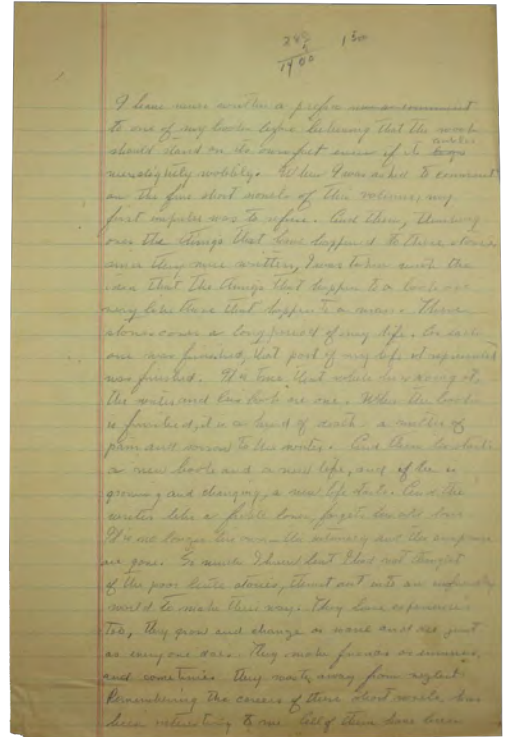 280 1 30
5
1400
I have never written a prefix nor a comment
to one of my books before believing that the work
should stand on its own feet even if its
were slightly wobbly. When I was asked to comment
on the five short novels of this volume, my
first impulse was to refuse. And then, thinking
over the things that have happened to these stories
since they were written, I was taken with the
idea that the things that happen to a book are
very like those that happen to a man. These
stories cover a long period of my life. As each
one was finished, that part of my life it represented
was finished. It is true that while he is doing it,
the writer and his book are one. When the book
is finished, it is a kind of death a matter of
pain and sorrow to the writer. And then he starts
a new book and a new life, and if he is
growing and changing, a new life starts. And the
writer like a fickle lover, forgets his old love
It is no longer his own the intimacy and the surprise
are gone. So much I knew but I had not thought
of the poor little stories, thrust out into an unfriendly
world to make their way. They have experiences
too, they grow and change or wane and die just
as everyone does. They make friends or enemies,
and sometimes they waste away from neglect
Remembering the careers of these short novels has
been interesting to me. All of them have been